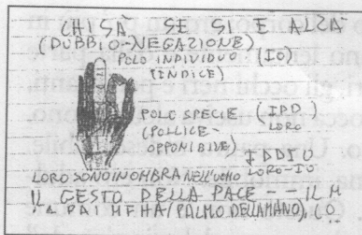 CHISÀ SE SI E ALZA
(DUBBIO-NEGAZIONE)
POLO INDIVIDUO (IO)
(INDICE)
POLO SPECIE (IDD)
(POLLICE- LORO
OPPONIBILE)
IDDIO
LORO SONO IN OMBRA NELL'UOMO LORO-IO
IL GESTO DELLA PACE -- IL M
DAI MEHA (PALMO DELLA MANO).